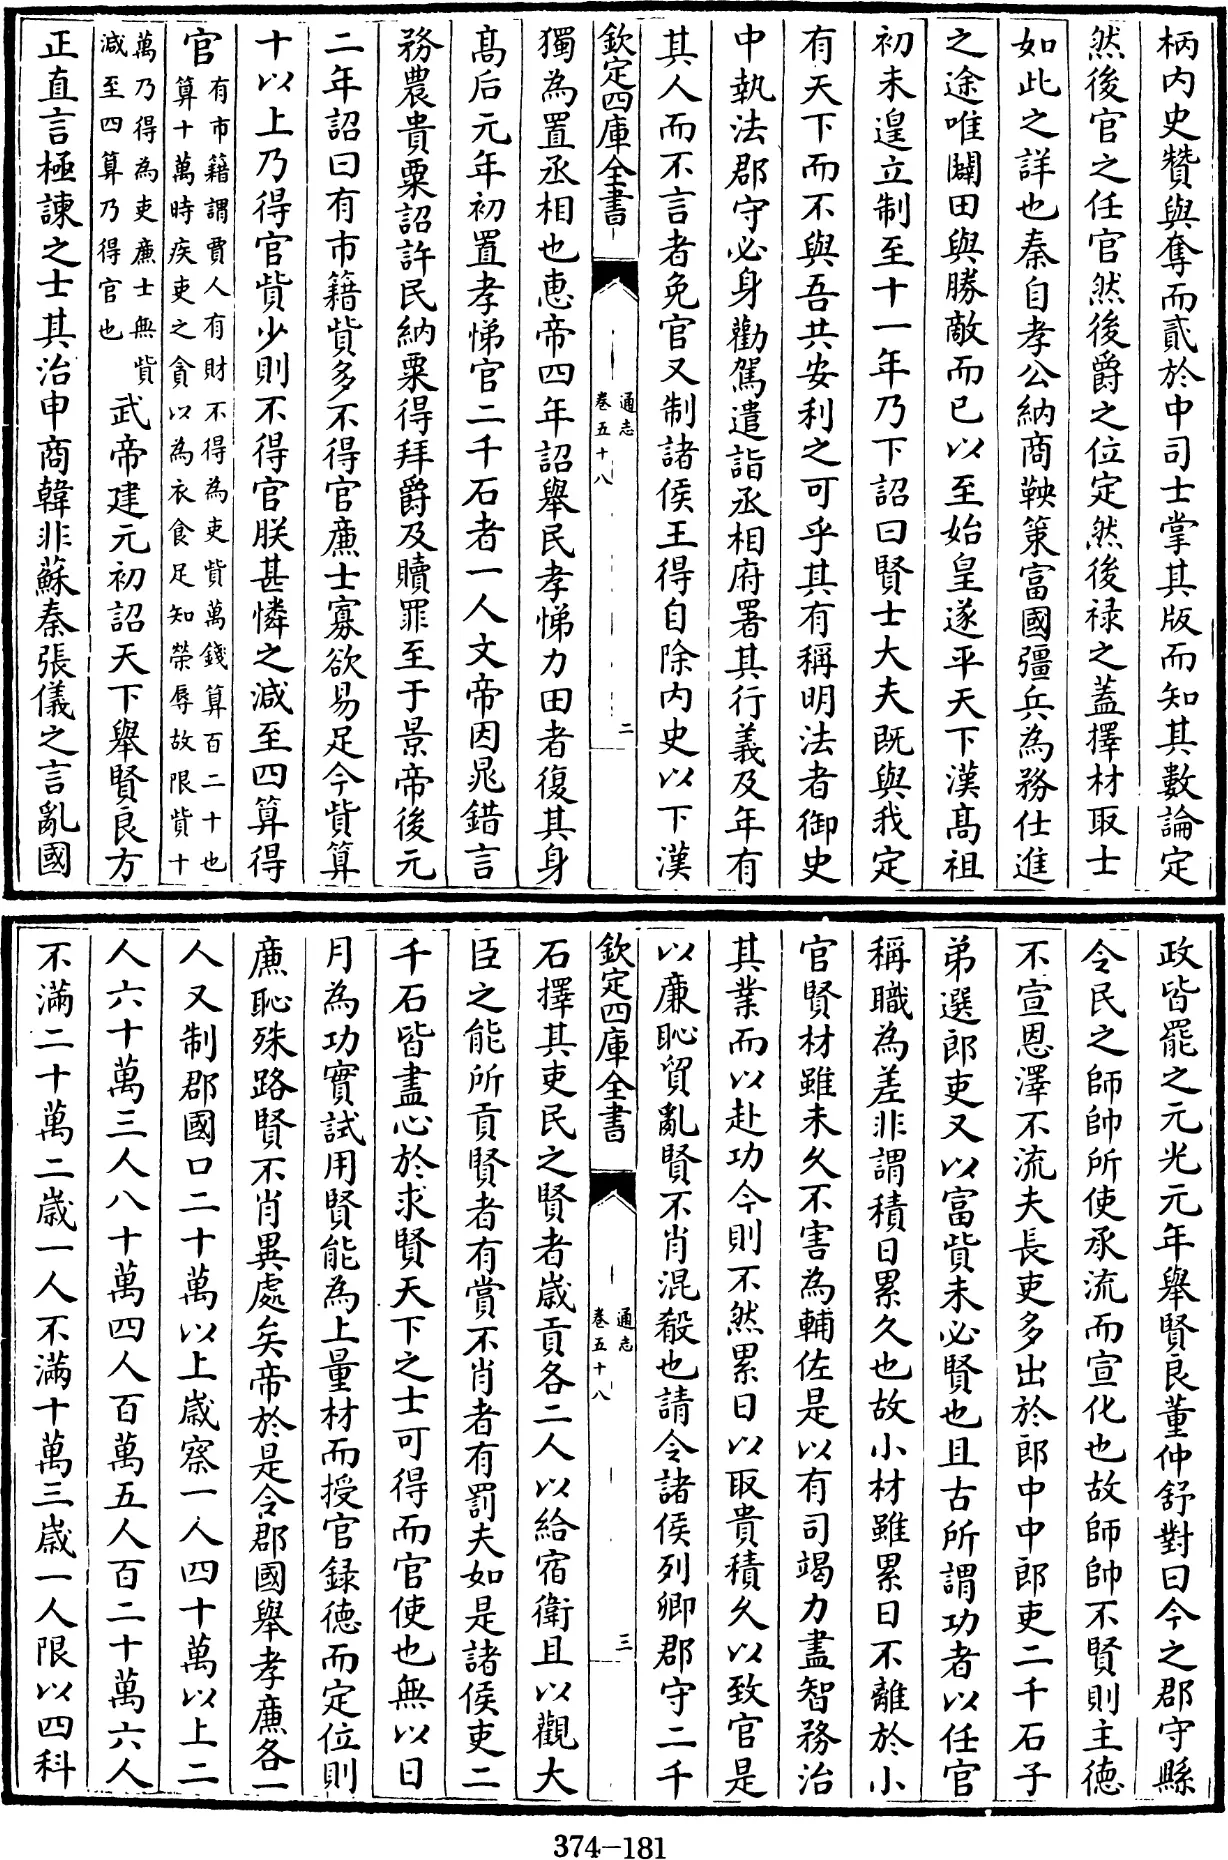 柄内史贊與奪而貳於中司士掌其版而知其數論定
然後官之任官然後爵之位定然後禄之蓋擇材取士
如此之詳也秦自孝公納商鞅策富國彊兵為務仕進
之途唯闢田與勝敵而已以至始皇遂平天下漢髙祖
初未遑立制至十一年乃下詔曰賢士大夫既與我定
有天下而不與吾共安利之可乎其有稱明法者御史
中執法郡守必身勸駕遣詣丞相府署其行義及年有
其人而不言者免官又制諸侯王得自除内史以下漢
欽定四庫全書
通志
卷五十八
二
獨為置丞相也惠帝四年詔舉民孝悌力田者復其身
髙后元年初置孝悌官二千石者一人文帝因晁錯言
務農貴粟詔許民納粟得拜爵及贖罪至于景帝後元
二年詔曰有市籍貲多不得官廉士寡欲易足今貲算
十以上乃得官貲少則不得官朕甚憐之減至四算得
官
有市籍謂賈人有財不得為吏貲萬錢算百二十也
算十萬時疾吏之貪以為衣食足知榮辱故限貲十
萬乃得為吏廉士無貲
減至四算乃得官也
武帝建元初詔天下舉賢良方
正直言極諫之士其治申商韓非蘇秦張儀之言亂國
政皆罷之元光元年舉賢良董仲舒對曰今之郡守縣
令民之師帥所使承流而宣化也故師帥不賢則主徳
不宣恩澤不流夫長吏多出於郎中中郎吏二千石子
弟選郎吏又以富貲未必賢也且古所謂功者以任官
稱職為差非謂積日累久也故小材雖累日不離於小
官賢材雖未久不害為輔佐是以有司竭力盡智務治
其業而以赴功今則不然累日以取貴積久以致官是
以廉恥貿亂賢不肖混殽也請令諸侯列卿郡守二千
欽定四庫全書
通志
卷五十八
三
石擇其吏民之賢者歲貢各二人以給宿衛且以觀大
臣之能所貢賢者有賞不肖者有罰夫如是諸侯吏二
千石皆盡心於求賢天下之士可得而官使也無以日
月為功實試用賢能為上量材而授官録徳而定位則
廉恥殊路賢不肖異處矣帝於是令郡國舉孝廉各一
人又制郡國口二十萬以上歲察一人四十萬以上二
人六十萬三人八十萬四人百萬五人百二十萬六人
不滿二十萬二歲一人不滿十萬三歲一人限以四科
374-181